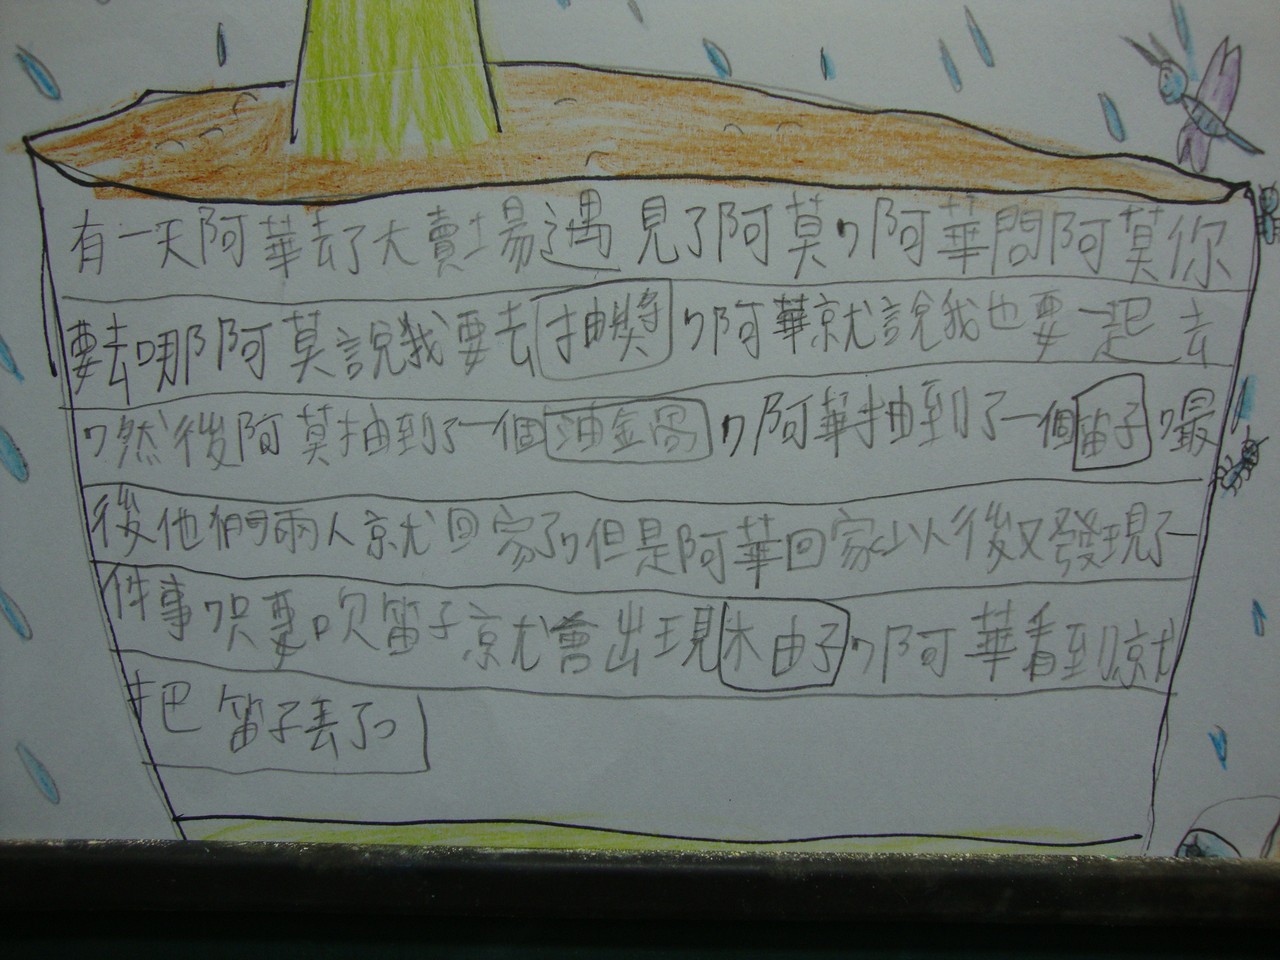 有一天阿華去了大賣場遇見了阿莫,阿華問阿莫你
要去哪阿莫說我要去抽獎,阿華就說我也要一起去
,然後阿莫抽到了一個油金窩,阿華抽到了一個笛子,最
後他們兩人就回家了,但是阿華回家以後又發現了一
件事,只要吹笛子就會出現木由子,阿華看到就
把笛子丟了。